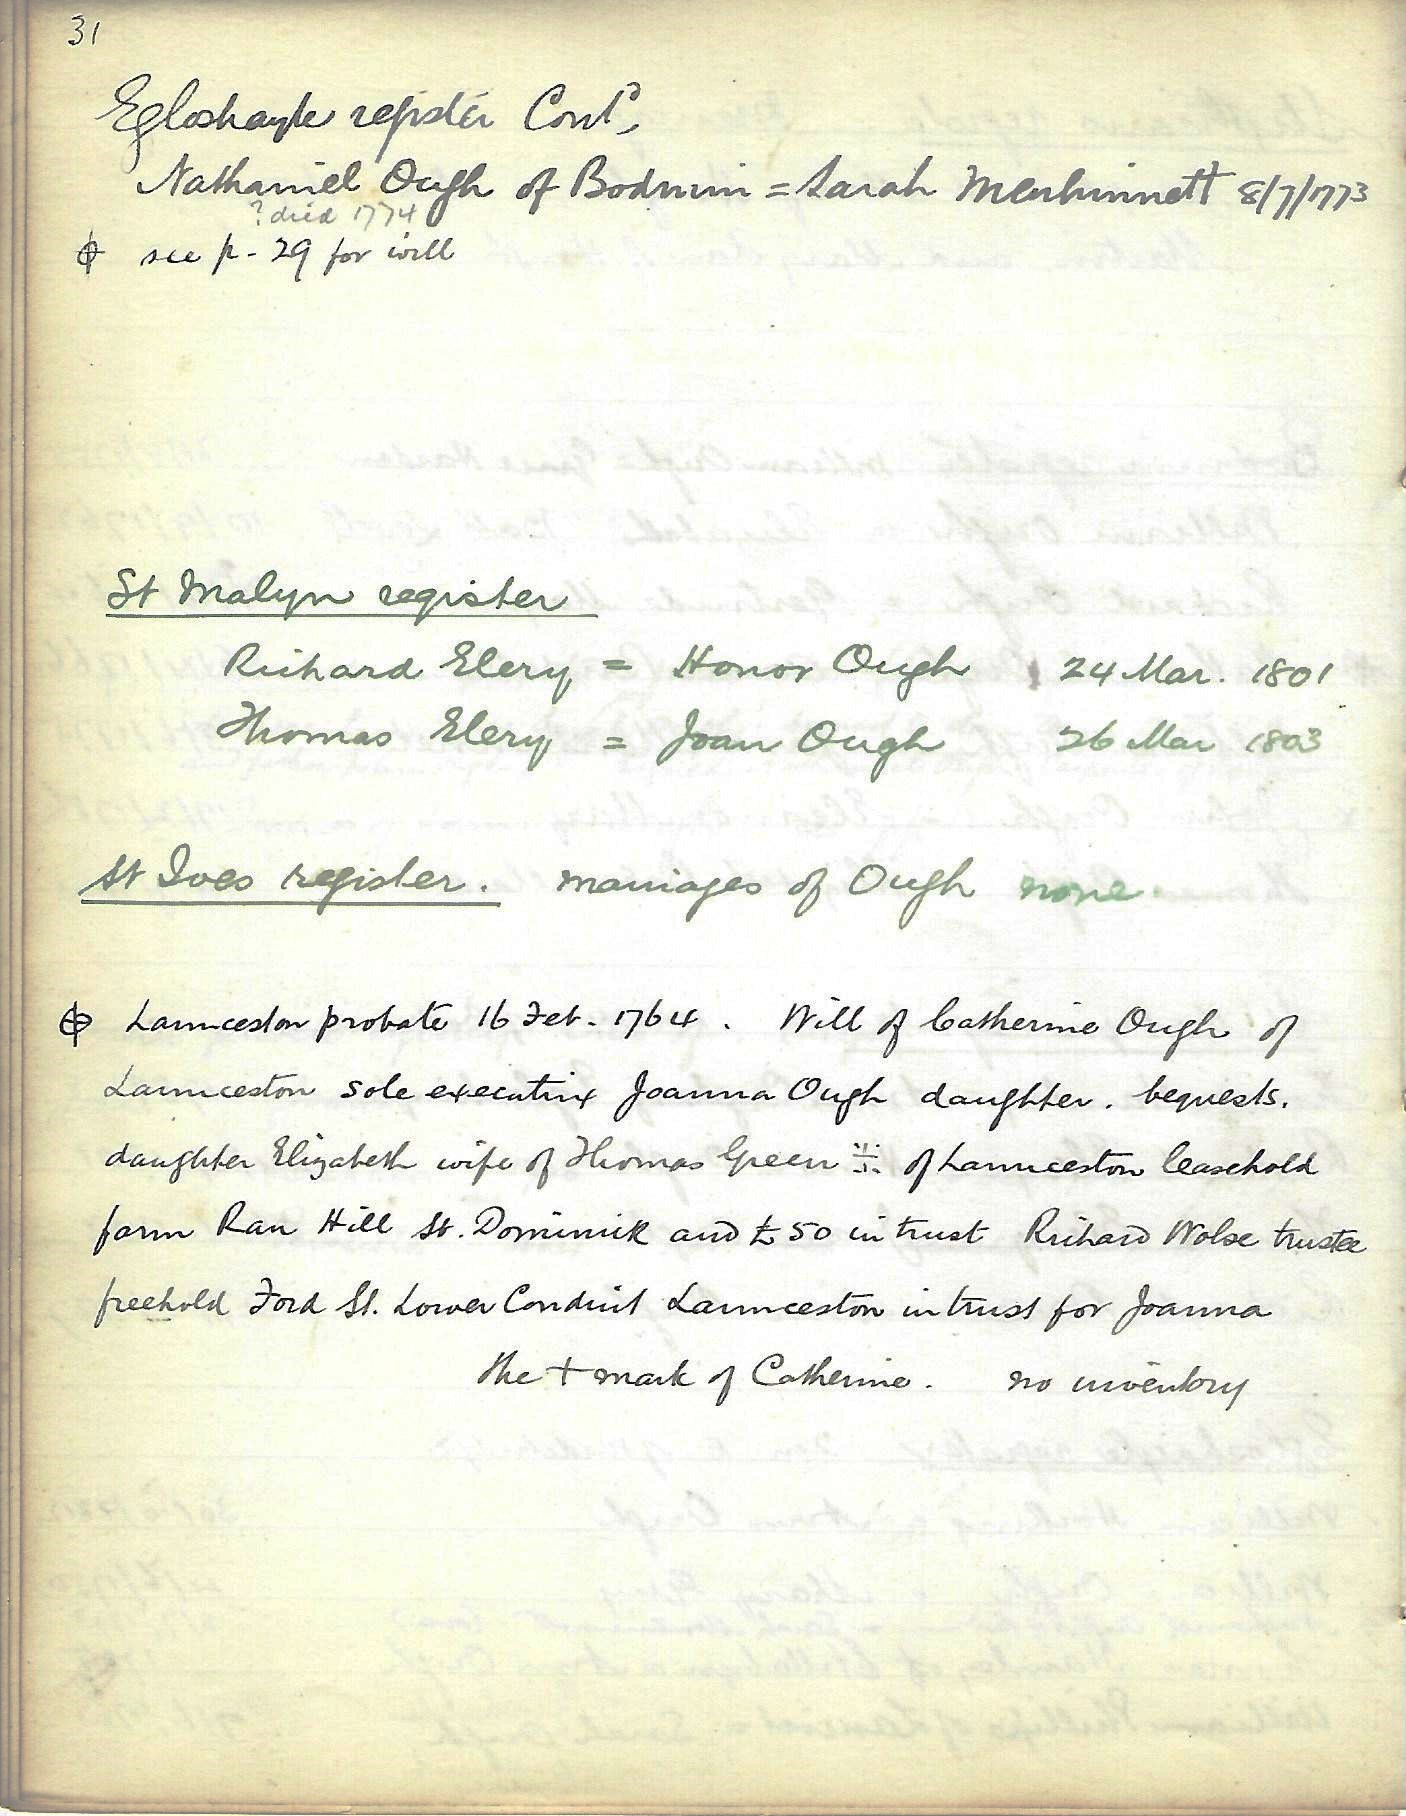 31
Egloshayle register Contd,
Nathaniel Ough of Bodmin = Sarah Menhinnett 8/7/1773
? died 1774
ф see p. 29 for will
St Malyn register
Richard Elery = Honor Ough 24 Mar. 1801
Thomas Elery = Joan Ough 26 Mar 1803
St Ives register. marriages of Ough none.
ф Launceston probate 16 Feb. 1764. Will of Catherine Ough of
Launceston sole executrix Joanna Ough daughter. bequests.
daughter Elizabeth wife of Thomas Green of Launceston leasehold
farm Ran Hill St. Dominick and £50 in trust Richard Wolse trustee
freehold Ford St. Lower Conduit Launceston in trust for Joanna
the + mark of Catherine. no inventory